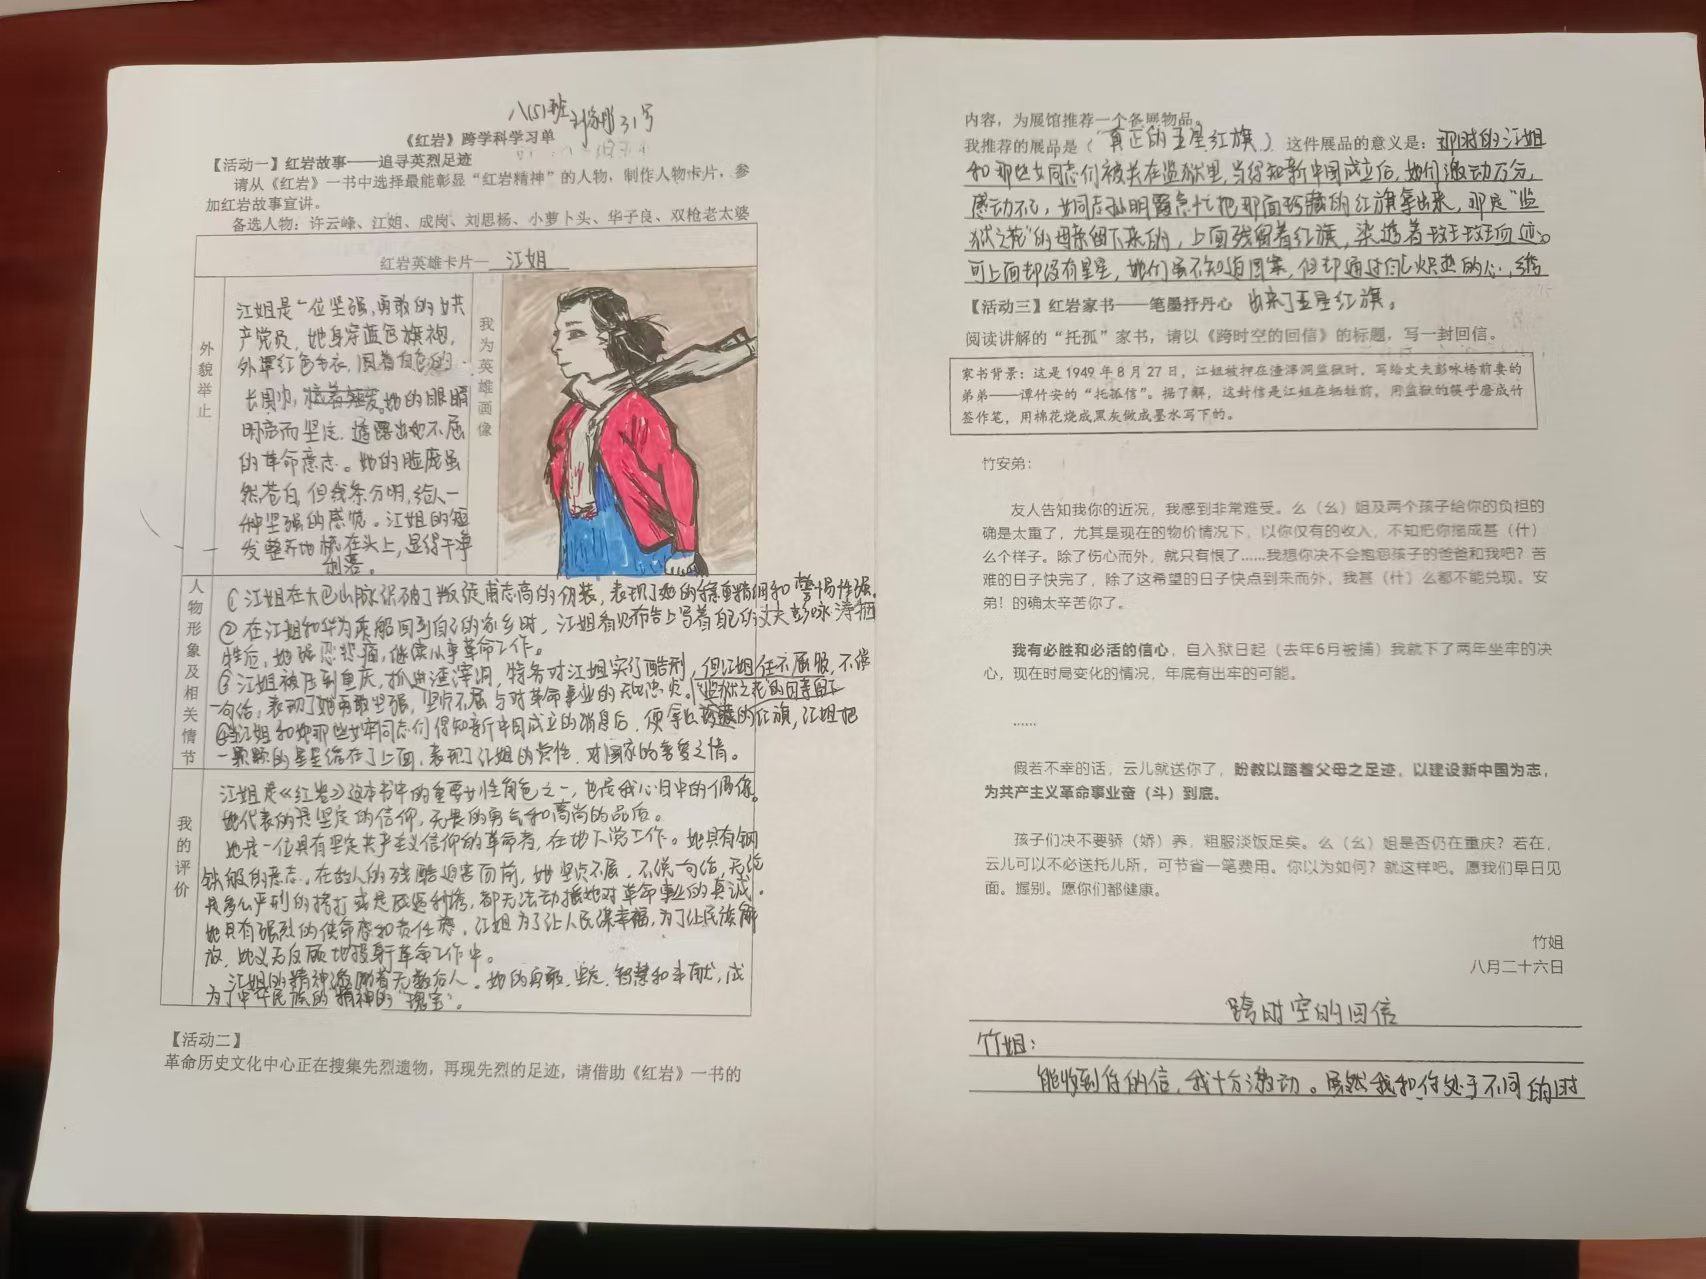 八(5)班 31号
《红岩》跨学科学习单
【活动一】红岩故事——追寻英烈足迹
请从《红岩》一书中选择最能彰显“红岩精神”的人物，制作人物卡片，参
加红岩故事宣讲。
备选人物：许云峰、江姐、成岗、刘思杨、小萝卜头、华子良、双枪老太婆
红岩英雄卡片— 江姐
外貌举止
江姐是一位坚强，勇敢的女共
产党员，她身穿蓝色旗袍，
外罩红色毛衣，围着白色的
长围巾，她的眼睛
明亮而坚定，透露出她不屈
的革命意志。她的脸庞虽
然苍白，但线条分明，给人一
种坚强的感觉。江姐的短
发整齐地梳在头上，显得干净
利落。
我为英雄画像
人物形象及相关情节
①江姐在大巴山脉保破了叛徒甫志高的伪装，表现了她的稳重精细和警惕性强。
②在江姐和华为乘船回到自己的家乡时，江姐看见布告上写着自己的丈夫彭咏涛牺
牲后，她强忍悲痛，继续从事革命工作。
③江姐被压到重庆，抓进渣滓洞，特务对江姐实行酷刑，但江姐任不屈服，不说
一句话，表现了她勇敢坚强，坚贞不屈与对革命事业的无比忠贞。“监狱之花”的母亲留下
④当江姐和她那些女牢同志们得知新中国成立的消息后，便拿出珍藏的红旗，江姐把
一颗颗的星星绣在了上面，表现了江姐的党性，对国家的喜爱之情。
我的评价
江姐是《红岩》这本书中的重要女性角色之一，也是我心目中的偶像。
她代表的是坚定的信仰，无畏的勇气和高尚的品质。
她是一位具有坚定共产主义信仰的革命者，在地下党工作。她具有钢
铁般的意志，在敌人的残酷迫害面前，她坚贞不屈，不说一句话，无论
是多么严刑的拷打或是威逼利诱，都无法动摇她对革命事业的真诚。
她具有强烈的使命感和责任感，江姐为了让人民谋幸福，为了让民族解
放，她义无反顾地投身于革命工作中。
江姐的精神激励着无数后人。她的勇敢、坚定、智慧和奉献，成
为了中华民族的“精神的”瑰宝”。
【活动二】
革命历史文化中心正在搜集先烈遗物，再现先烈的足迹，请借助《红岩》一书的
内容，为展馆推荐一个备展物品。
我推荐的展品是（真正的五星红旗）这件展品的意义是：那时的江姐
和那些女同志们被关在监狱里，当得知新中国成立后，她们激动万分，
感动不已，女同志孙明霞急忙把那面珍藏的红旗拿出来，那是“监
狱之花”的母亲留下来的，上面残留着红旗，染透着斑斑血迹。
可上面却没有星星，她们虽不知道图案，但却通过自己火炽热的心，绣
出来了五星红旗。
【活动三】红岩家书——笔墨抒丹心
阅读讲解的“托孤”家书，请以《跨时空的回信》的标题，写一封回信。
家书背景：这是 1949 年 8 月 27 日，江姐被押在渣滓洞监狱时，写给丈夫彭咏梧前妻的
弟弟——谭竹安的“托孤信”。据了解，这封信是江姐在牺牲前，用监狱的筷子磨成竹
签作笔，用棉花烧成黑灰做成墨水写下的。
竹安弟：
友人告知我你的近况，我感到非常难受。么（幺）姐及两个孩子给你的负担的
确是太重了，尤其是现在的物价情况下，以你仅有的收入，不知把你拖成甚（什）
么个样子。除了伤心而外，就只有恨了……我想你决不会抱怨孩子的爸爸和我吧？苦
难的日子快完了，除了这希望的日子快点到来而外，我甚（什）么都不能兑现。安
弟！的确太辛苦你了。
我有必胜和必活的信心，自入狱日起（去年6月被捕）我就下了两年坐牢的决
心，现在时局变化的情况，年底有出牢的可能。
……
假若不幸的话，云儿就送你了，盼教以踏着父母之足迹，以建设新中国为志，
为共产主义革命事业奋（斗）到底。
孩子们决不要骄（娇）养，粗服淡饭足矣。么（幺）姐是否仍在重庆？若在，
云儿可以不必送托儿所，可节省一笔费用。你以为如何？就这样吧。愿我们早日见
面。握别。愿你们都健康。
竹姐
八月二十六日
跨时空的回信
竹姐：
能收到你的信，我十分激动。虽然我和你处于不同的时